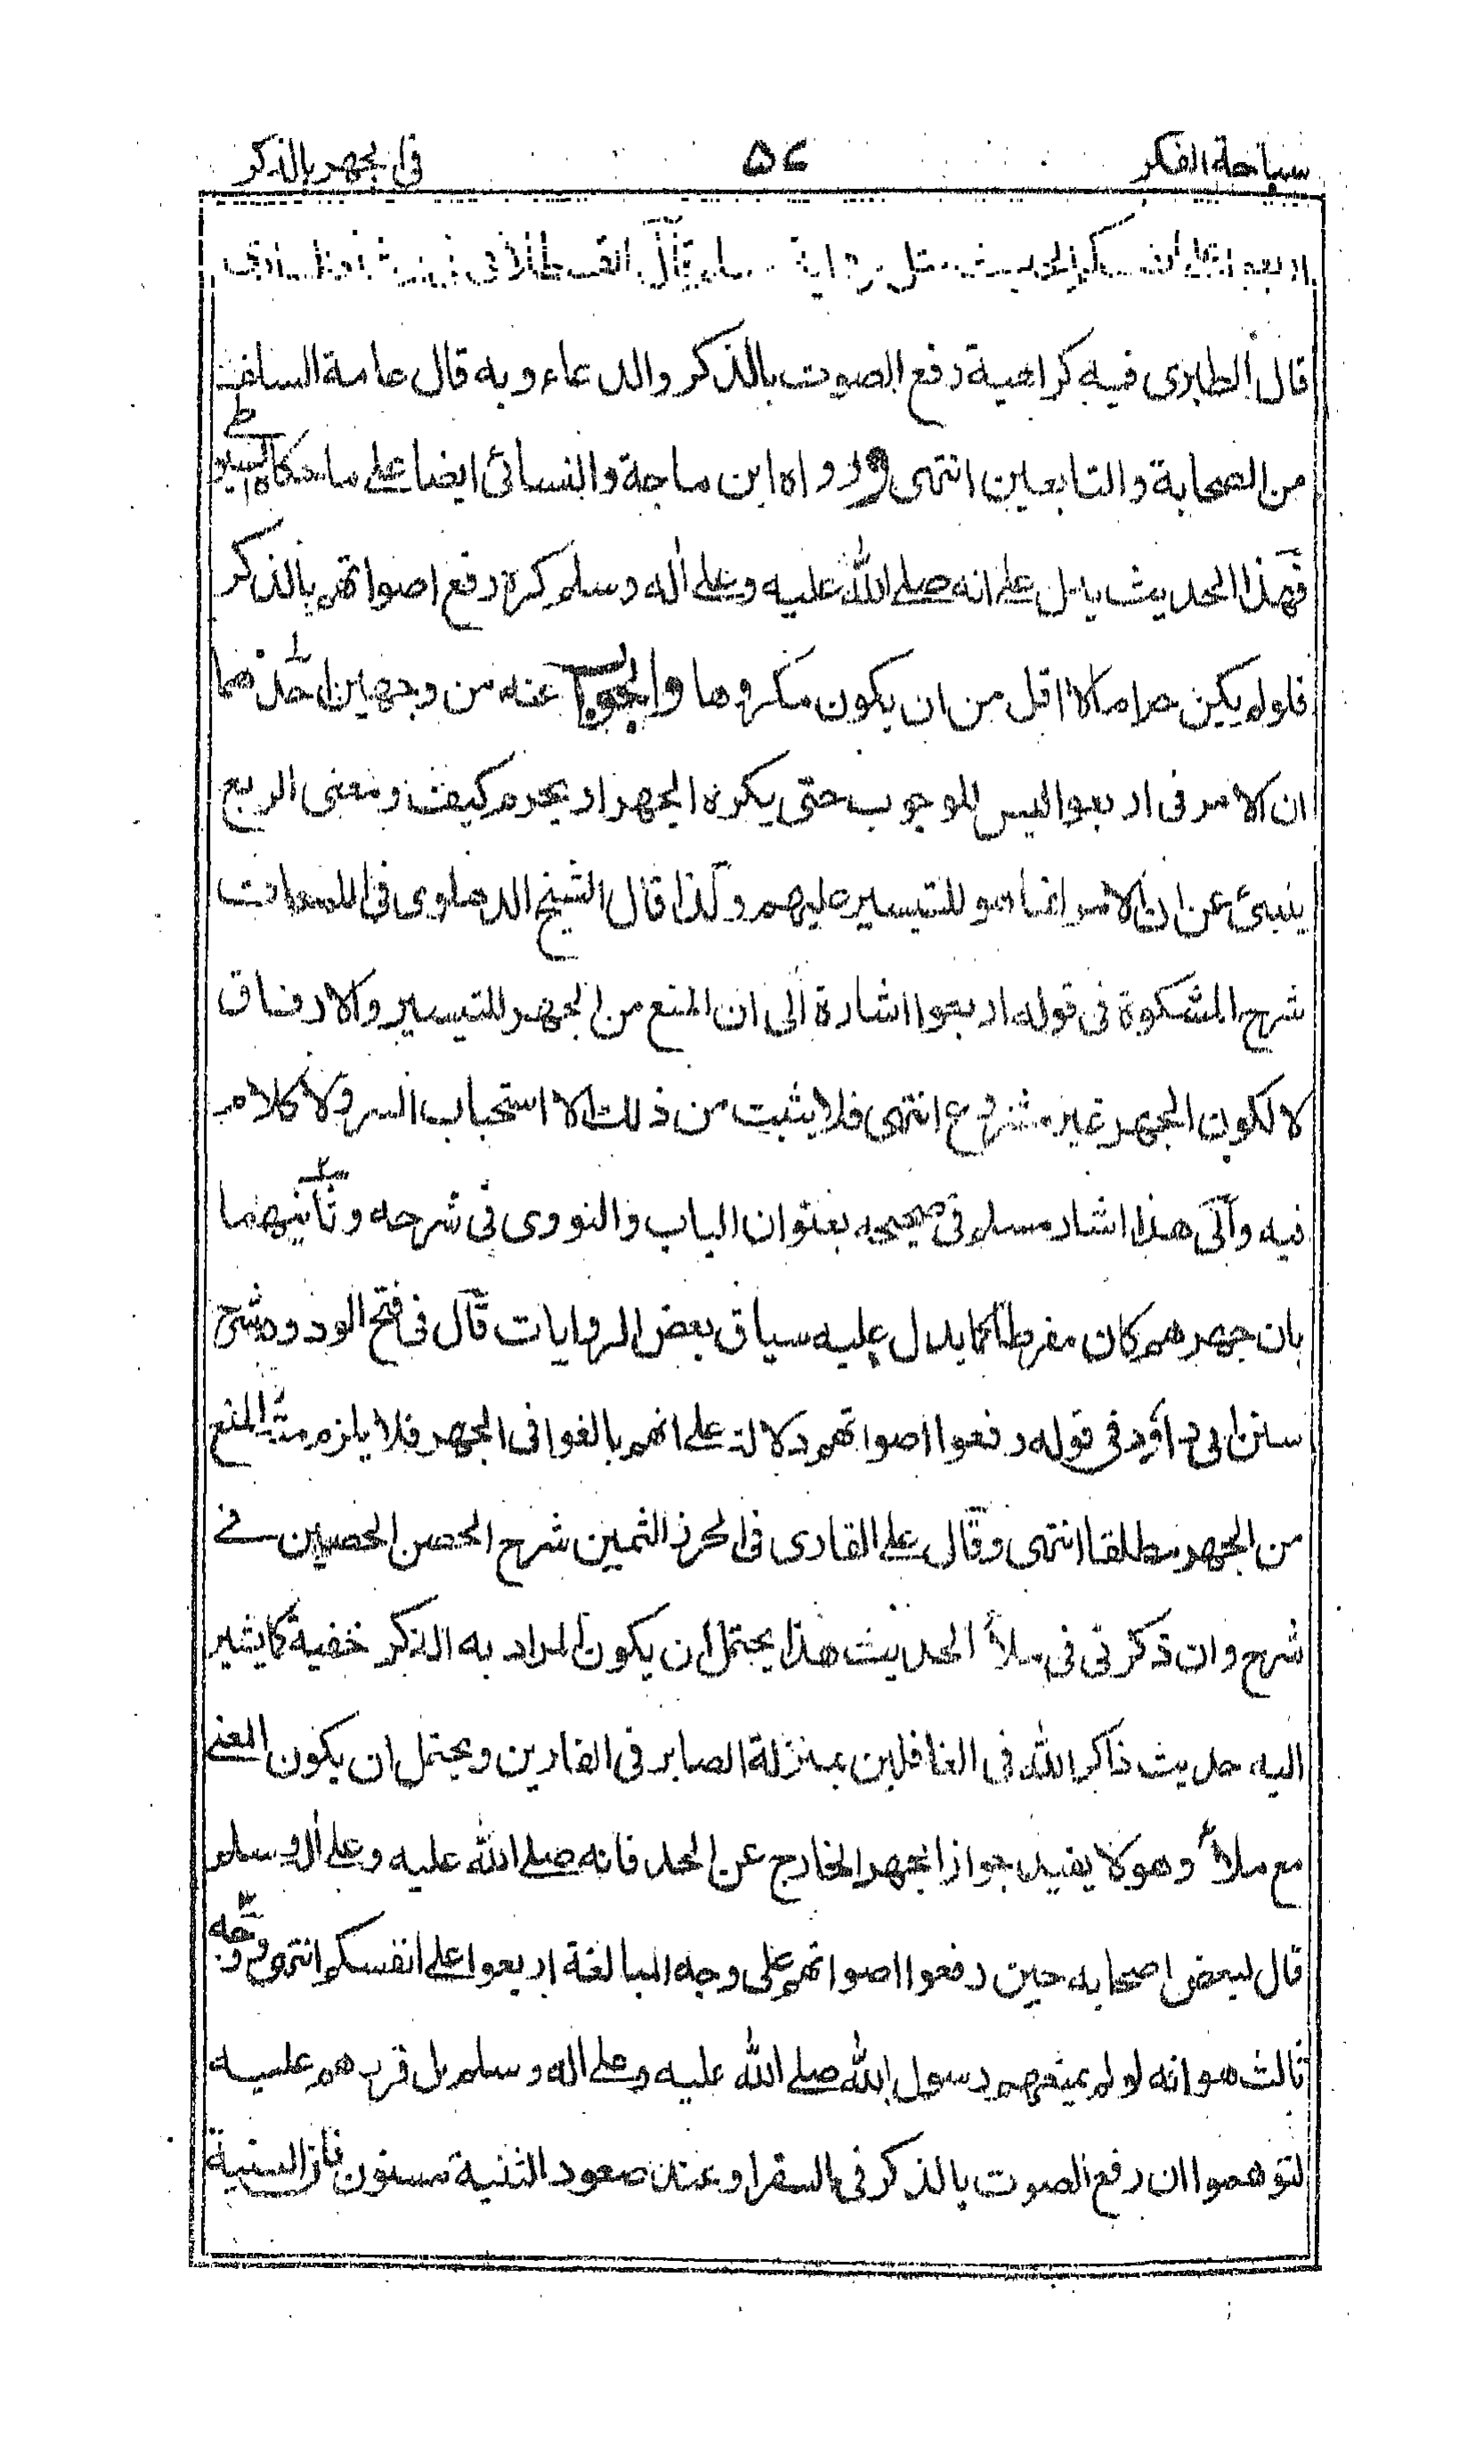 سباحة الفكر ٥٤ فى الجهر بالذكر
اربعوا على انفسكم الحديث مثل رواية مسلم قال القسطلانى فى
قال الطبرى فيه كراهية رفع الصوت بالذكر والدعاء وبه قال عامة السلف
من الصحابة والتابعين انتهى ورواه ابن ماجة والنسائى ايضا على ما حكاه السيوطى
فهذا الحديث يدل على انه صلى الله عليه وعلى اله وسلم كره رفع اصواتهم بالذكر
فلو لم يكن حراما لا اقل من ان يكون مكروها والجواب عنه من وجهين احدهما
ان الامر فى اربعوا ليس للوجوب حتى يكره الجهر او يحرم كيف ومعنى الربع
ينبئ عن ان الامر انما هو للتيسير عليهم وكذا قال الشيخ الدهلوى فى اللمعات
شرح المشكوة فى قوله اربعوا اشارة الى ان المنع من الجهر للتيسير والارفاق
لا لكون الجهر غير مشروع انتهى فلا يثبت من ذلك الا استحباب السر ولا كلام
فيه والى هذا اشار مسلم فى صحيحه بعنوان الباب والنووى فى شرحه وثانيهما
بان جهرهم كان مفرطا كما يدل عليه سياق بعض الروايات قال فى فتح الودود شرح
سنن ابى داؤد فى قوله رفعوا اصواتهم دلالة على انهم بالغوا فى الجهر فلا يلزم منه المنع
من الجهر مطلقا انتهى وقال على القارى فى الحرز الثمين شرح الحصن الحصين فى
شرح وان ذكرنى فى ملأ الحديث هذا يحتمل ان يكون المراد به الذكر خفية كما يشير
اليه حديث ذاكر الله فى الغافلين بمنزلة الصابر فى الفارين ويحتمل ان يكون المعنى
مع ملأ وهو لا يفيد جواز الجهر الخارج عن الحد فانه صلى الله عليه وعلى اله وسلم
قال لبعض اصحابه حين رفعوا اصواتهم على وجه المبالغة اربعوا على انفسكم انتهى ووجه
ثالث هو انه لو لم يمنعهم رسول الله صلى الله عليه وعلى اله وسلم بل قررهم عليه
لتوهموا ان رفع الصوت بالذكر فى السفر او عند صعود الثنية مسنون فان السنية